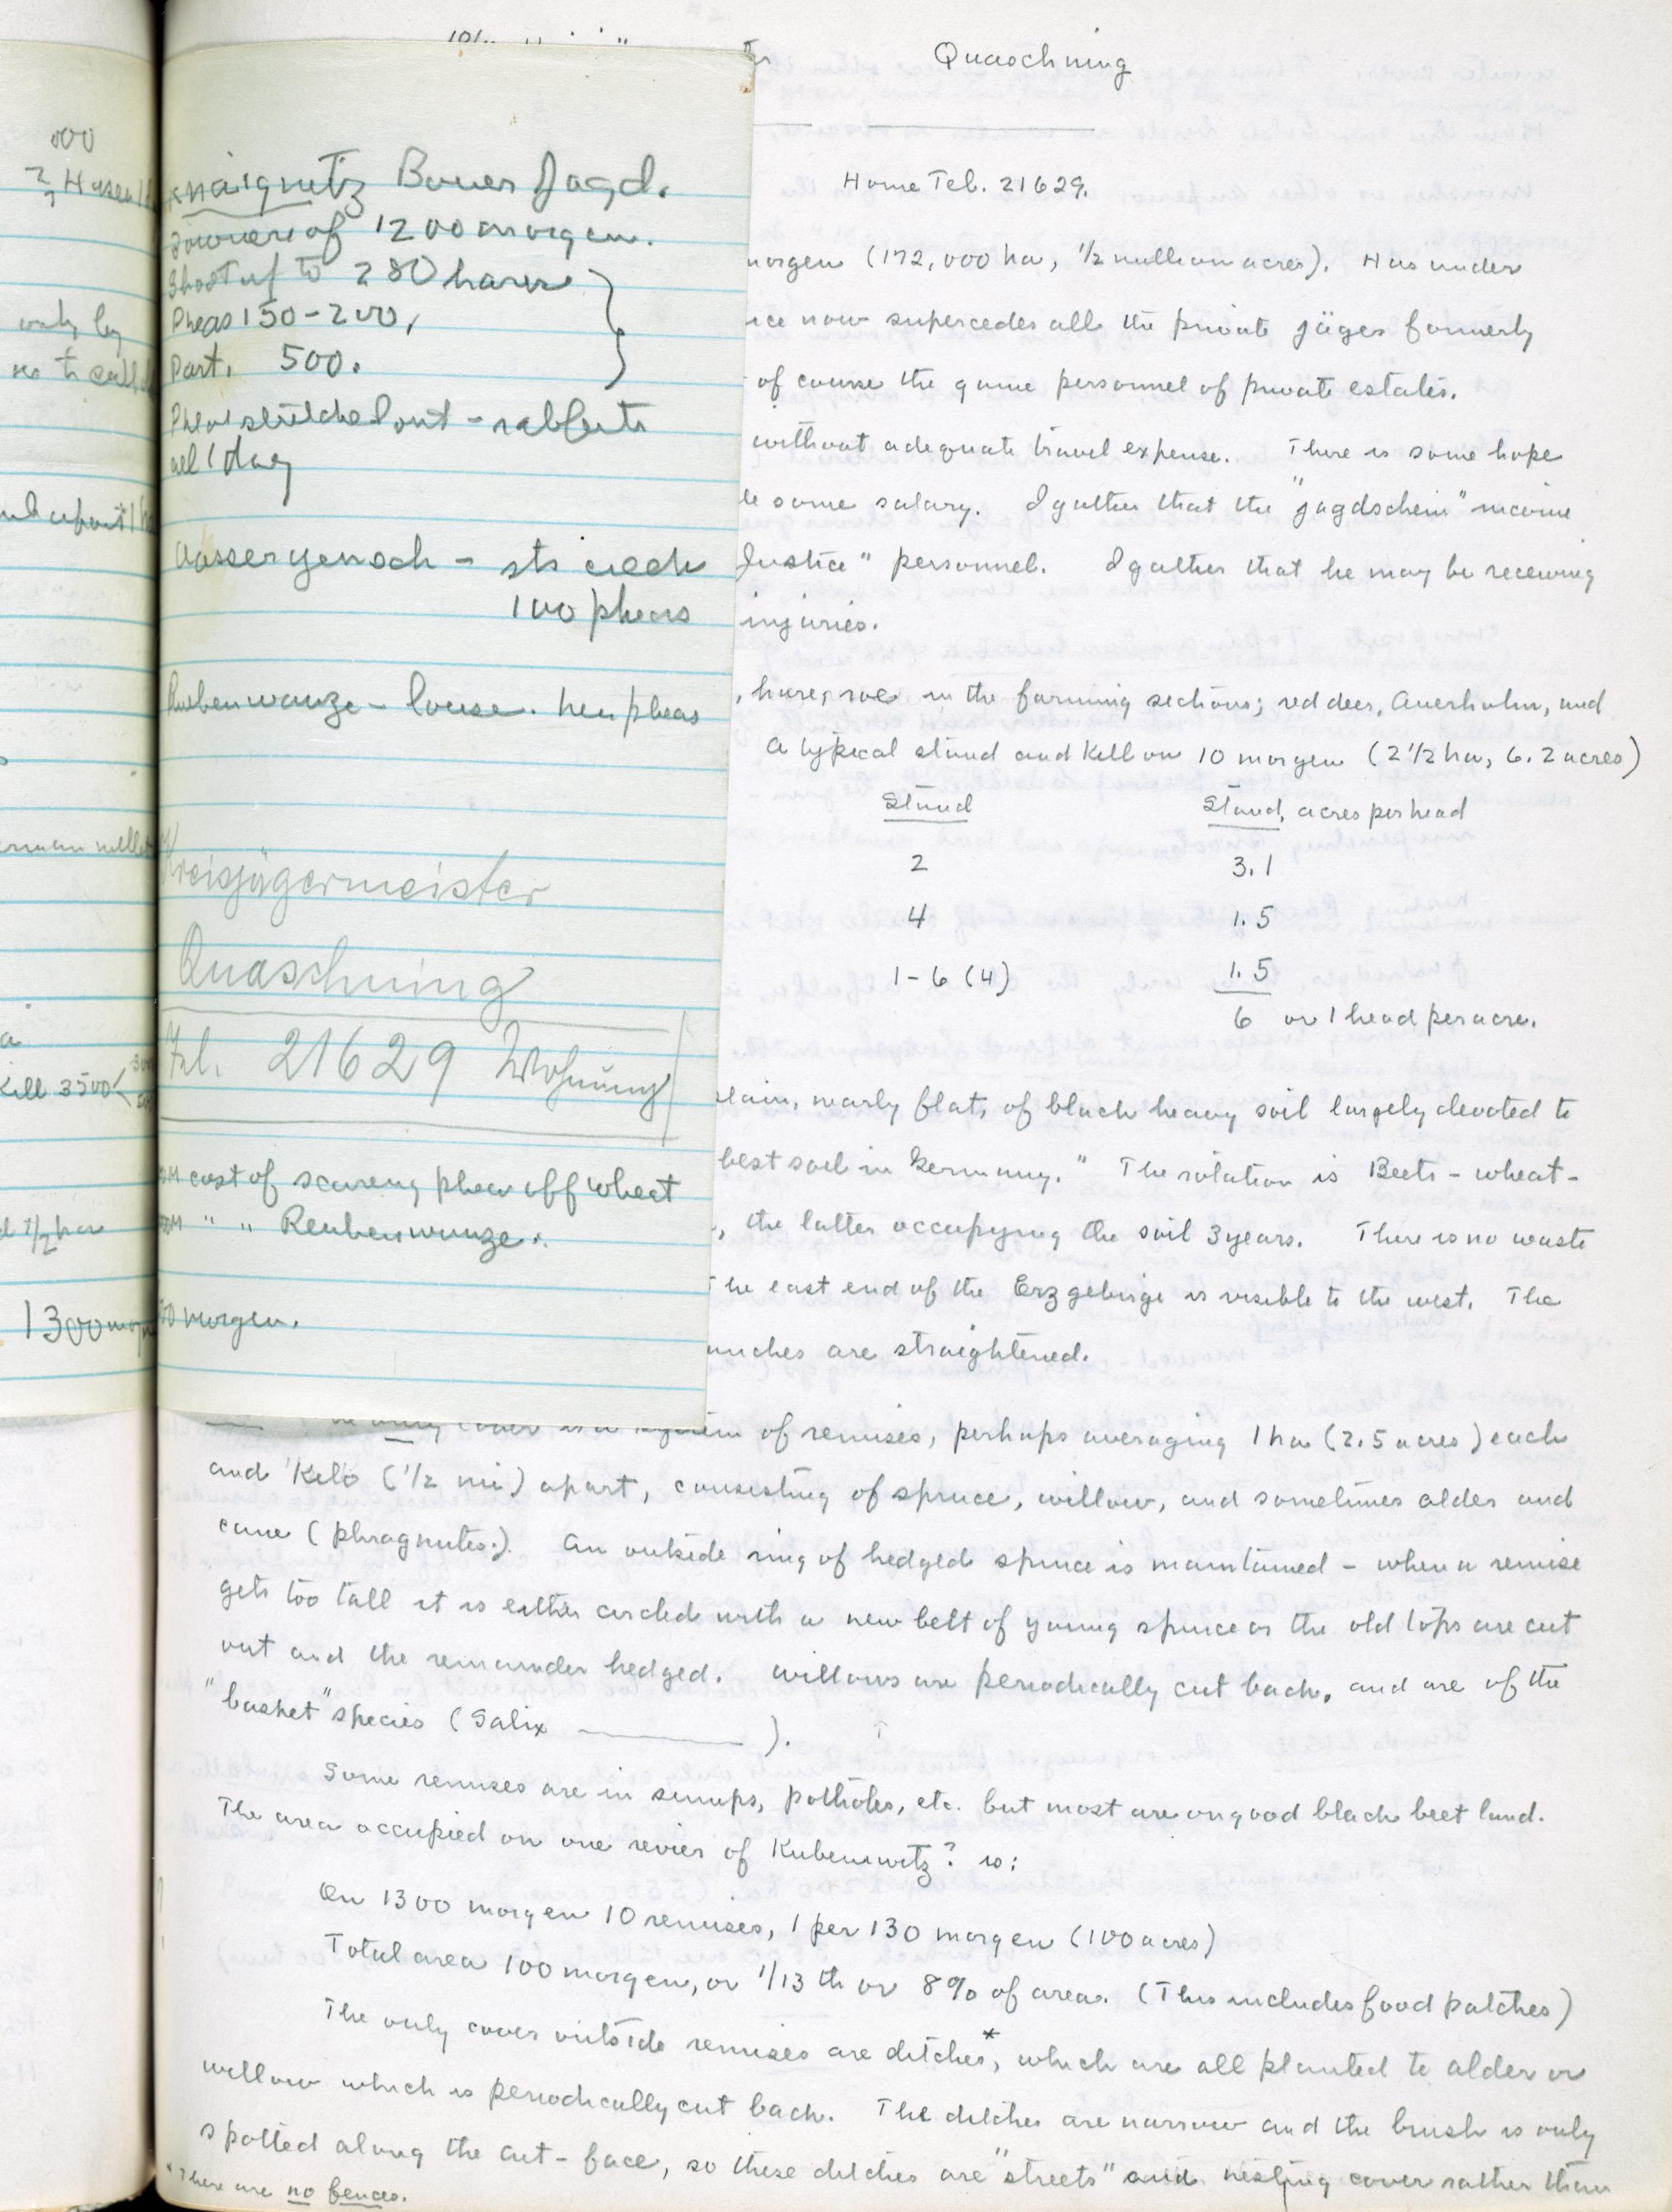 000
2 Hasen
only by
no to call
Kill 3500
1/2 ha
1300
Knaignitz Bauer Jagd.
owners of 1200 morgen.
Shoot up to 280 hares
Pheas 150-200,
Part. 500.
- rabbits
all 1 day
Wassergenoch - sts creek
100 pheas
Ruebenwanze - louse. hen pheas
Kreisjägermeister
Quaschning
Tel. 21629 Wohnung
cost of scaring pheas off wheat
" " Reubenwanze.
morgen.
Quaschning
Home Tel. 21629.
morgen (172,000 ha, 1/2 million acres). Has under
now supercedes all the private jäger formerly
of course the game personnel of private estates.
without adequate travel expense. There is some hope
some salary. I gather that the "jagdschein" income
Justice" personnel. I gather that he may be receiving
injuries.
, hare, roe in the farming sections; red deer, Auerhahn, and
A typical stand and kill on 10 morgen (2 1/2 ha, 6.2 acres)
Stand Stand, acres per head
2 3.1
4 1.5
1-6 (4) 1.5
6 or 1 head per acre.
plain, nearly flat, of black heavy soil largely devoted to
best soil in Germany." The rotation is Beets - wheat -
, the latter occupying the soil 3 years. There is no waste
The east end of the Erzgebirge is visible to the west. The
branches are straightened.
only cover is a system of remises, perhaps averaging 1 ha (2.5 acres) each
and 1 Kilo (1/2 mi) apart, consisting of spruce, willow, and sometimes alder and
cane (phragmites.). An outside ring of hedged spruce is maintained - when a remise
gets too tall it is either circled with a new belt of young spruce or the old tops are cut
out and the remainder hedged. Willows are periodically cut back, and are of the
"basket" species (Salix ______ ).
Some remises are in sumps, potholes, etc. but most are on good black beet land.
The area occupied on one revier of Kubenwitz? is:
On 1300 morgen 10 remises, 1 per 130 morgen (100 acres)
Total area 100 morgen, or 1/13 th or 8% of area. (This includes food patches)
The only cover outside remises are ditches*, which are all planted to alder or
willow which is periodically cut back. The ditches are narrow and the brush is only
spotted along the cut-face, so these ditches are "streets" and nesting cover rather than
*There are no fences.